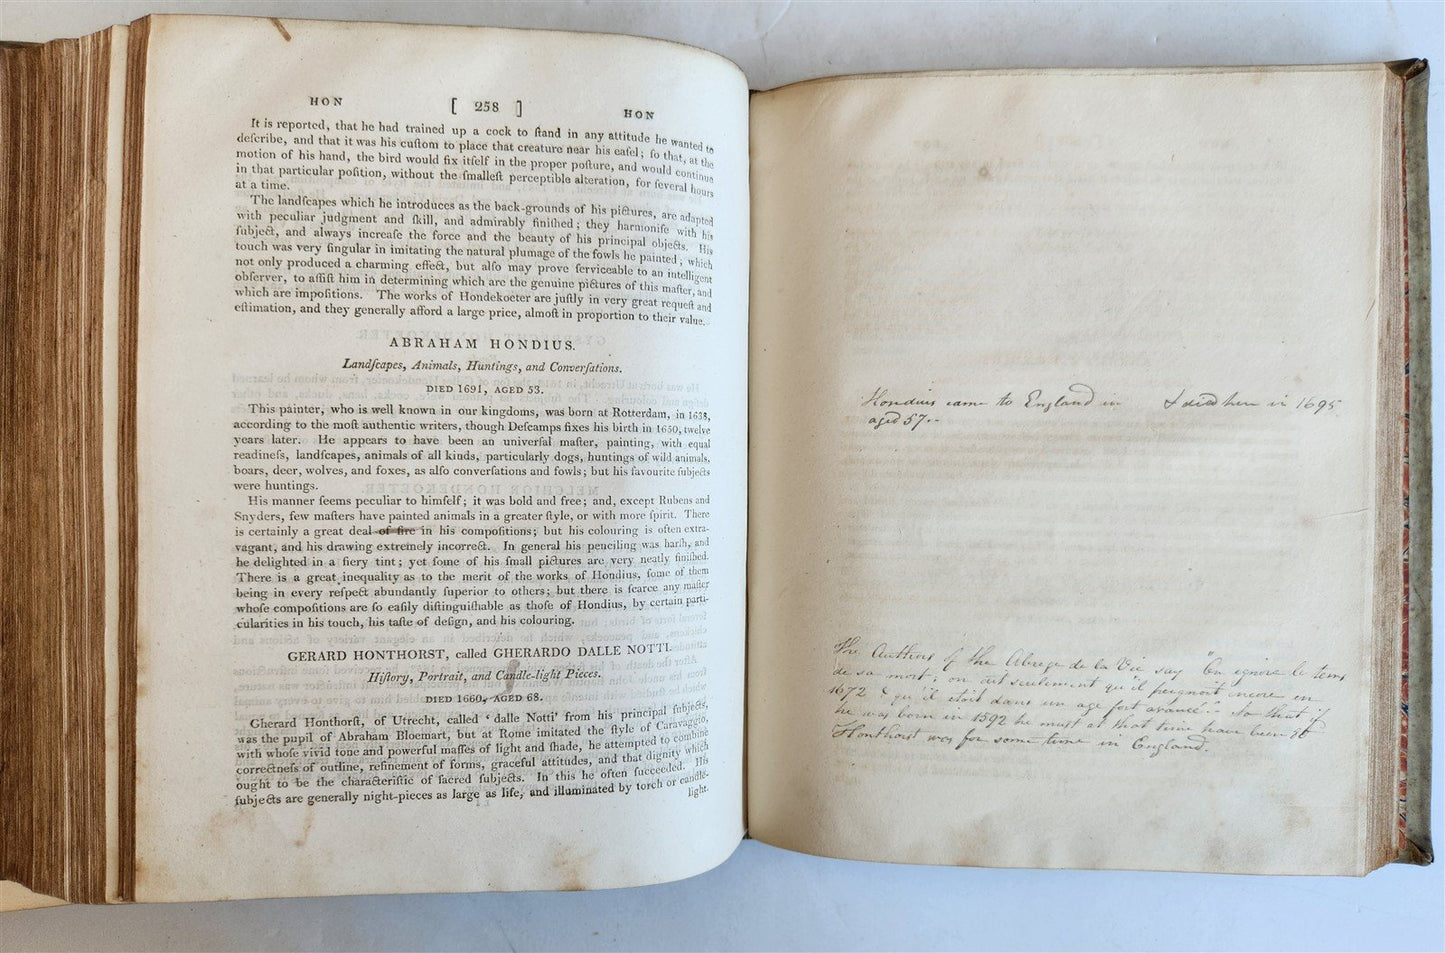 HON [ 258 ] HON
It is reported, that he had trained up a cock to ſtand in any attitude he wanted to
deſcribe, and that it was his cuſtom to place that creature near his eaſel; ſo that, at the
motion of his hand, the bird would fix itſelf in the proper poſture, and would continue
in that particular poſition, without the ſmalleſt perceptible alteration, for ſeveral hours
at a time.
The landſcapes which he introduces as the back-grounds of his pictures, are adapted
with peculiar judgment and ſkill, and admirably finiſhed; they harmoniſe with his
ſubject, and always increaſe the force and the beauty of his principal objects. His
touch was very ſingular in imitating the natural plumage of the fowls he painted; which
not only produced a charming effect, but alſo may prove ſerviceable to an intelligent
obſerver, to aſſiſt him in determining which are the genuine pictures of this maſter, and
which are impoſitions. The works of Hondekoeter are juſtly in very great requeſt and
eſtimation, and they generally afford a large price, almoſt in proportion to their value.
ABRAHAM HONDIUS.
Landſcapes, Animals, Huntings, and Converſations.
DIED 1691, AGED 53.
This painter, who is well known in our kingdoms, was born at Rotterdam, in 1638,
according to the moſt authentic writers, though Deſcamps fixes his birth in 1650, twelve
years later. He appears to have been an univerſal maſter, painting, with equal
readineſs, landſcapes, animals of all kinds, particularly dogs, huntings of wild animals,
boars, deer, wolves, and foxes, as alſo converſations and fowls; but his favourite ſubjects
were huntings.
His manner ſeems peculiar to himſelf; it was bold and free; and, except Rubens and
Snyders, few maſters have painted animals in a greater ſtyle, or with more ſpirit. There
is certainly a great deal of fire in his compoſitions; but his colouring is often extra-
vagant, and his drawing extremely incorrect. In general his penciling was harſh, and
he delighted in a fiery tint; yet ſome of his ſmall pictures are very neatly finiſhed.
There is a great inequality as to the merit of the works of Hondius, ſome of them
being in every reſpect abundantly ſuperior to others; but there is ſcarce any maſter
whoſe compoſitions are ſo eaſily diſtinguiſhable as thoſe of Hondius, by certain parti-
cularities in his touch, his taſte of deſign, and his colouring.
GERARD HONTHORST, called GHERARDO DALLE NOTTI.
Hiſtory, Portrait, and Candle-light Pieces.
DIED 1660, AGED 68.
Gherard Honthorſt, of Utrecht, called ‘dalle Notti’ from his principal ſubjects,
was the pupil of Abraham Bloemart, but at Rome imitated the ſtyle of Caravaggio,
with whoſe vivid tone and powerful maſſes of light and ſhade, he attempted to combine
correctneſs of outline, refinement of forms, graceful attitudes, and that dignity which
ought to be the characteriſtic of ſacred ſubjects. In this he often ſucceeded. His
ſubjects are generally night-pieces as large as life, and illuminated by torch or candle-
light.
Hondius came to England in & died here in 1695
aged 57.-
The Authors of the Abrege de la Vie say "On ignore le tems
de sa mort, on dit seulement qu'il peignoit encore en
1672 & qu'il etoit dans un age fort avancé." So that if
he was born in 1592 he must at that time have been 80
Honthorst was for some time in England.